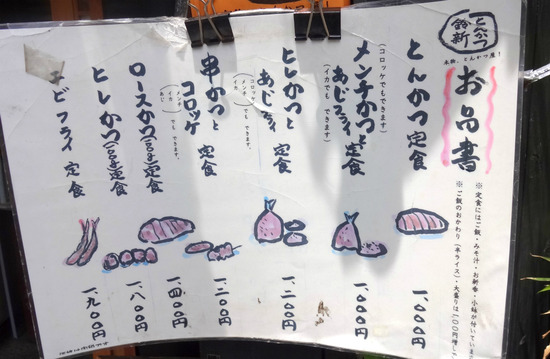 とんかつ
鈴新
お品書
※定食にはご飯・みそ汁・お新香・小鉢が付いています
※ご飯のおかわり(半ライス)・大盛りは100円増し
とんかつ 定食
一、000円
(コロッケでもできます)
メンチかつと
あじフライ 定食
(イカでも できます)
一、000円
ヒレかつと
あじフライ 定食
コロッケ
メンチ
イカ
でも できます。
一、二00円
串かつと
コロッケ 定食
メンチ
あじ
イカ
でも できます。
一、二00円
ロースかつ 定食
一、四00円
ヒレかつ 定食
一、八00円
ビフライ 定食
一、九00円